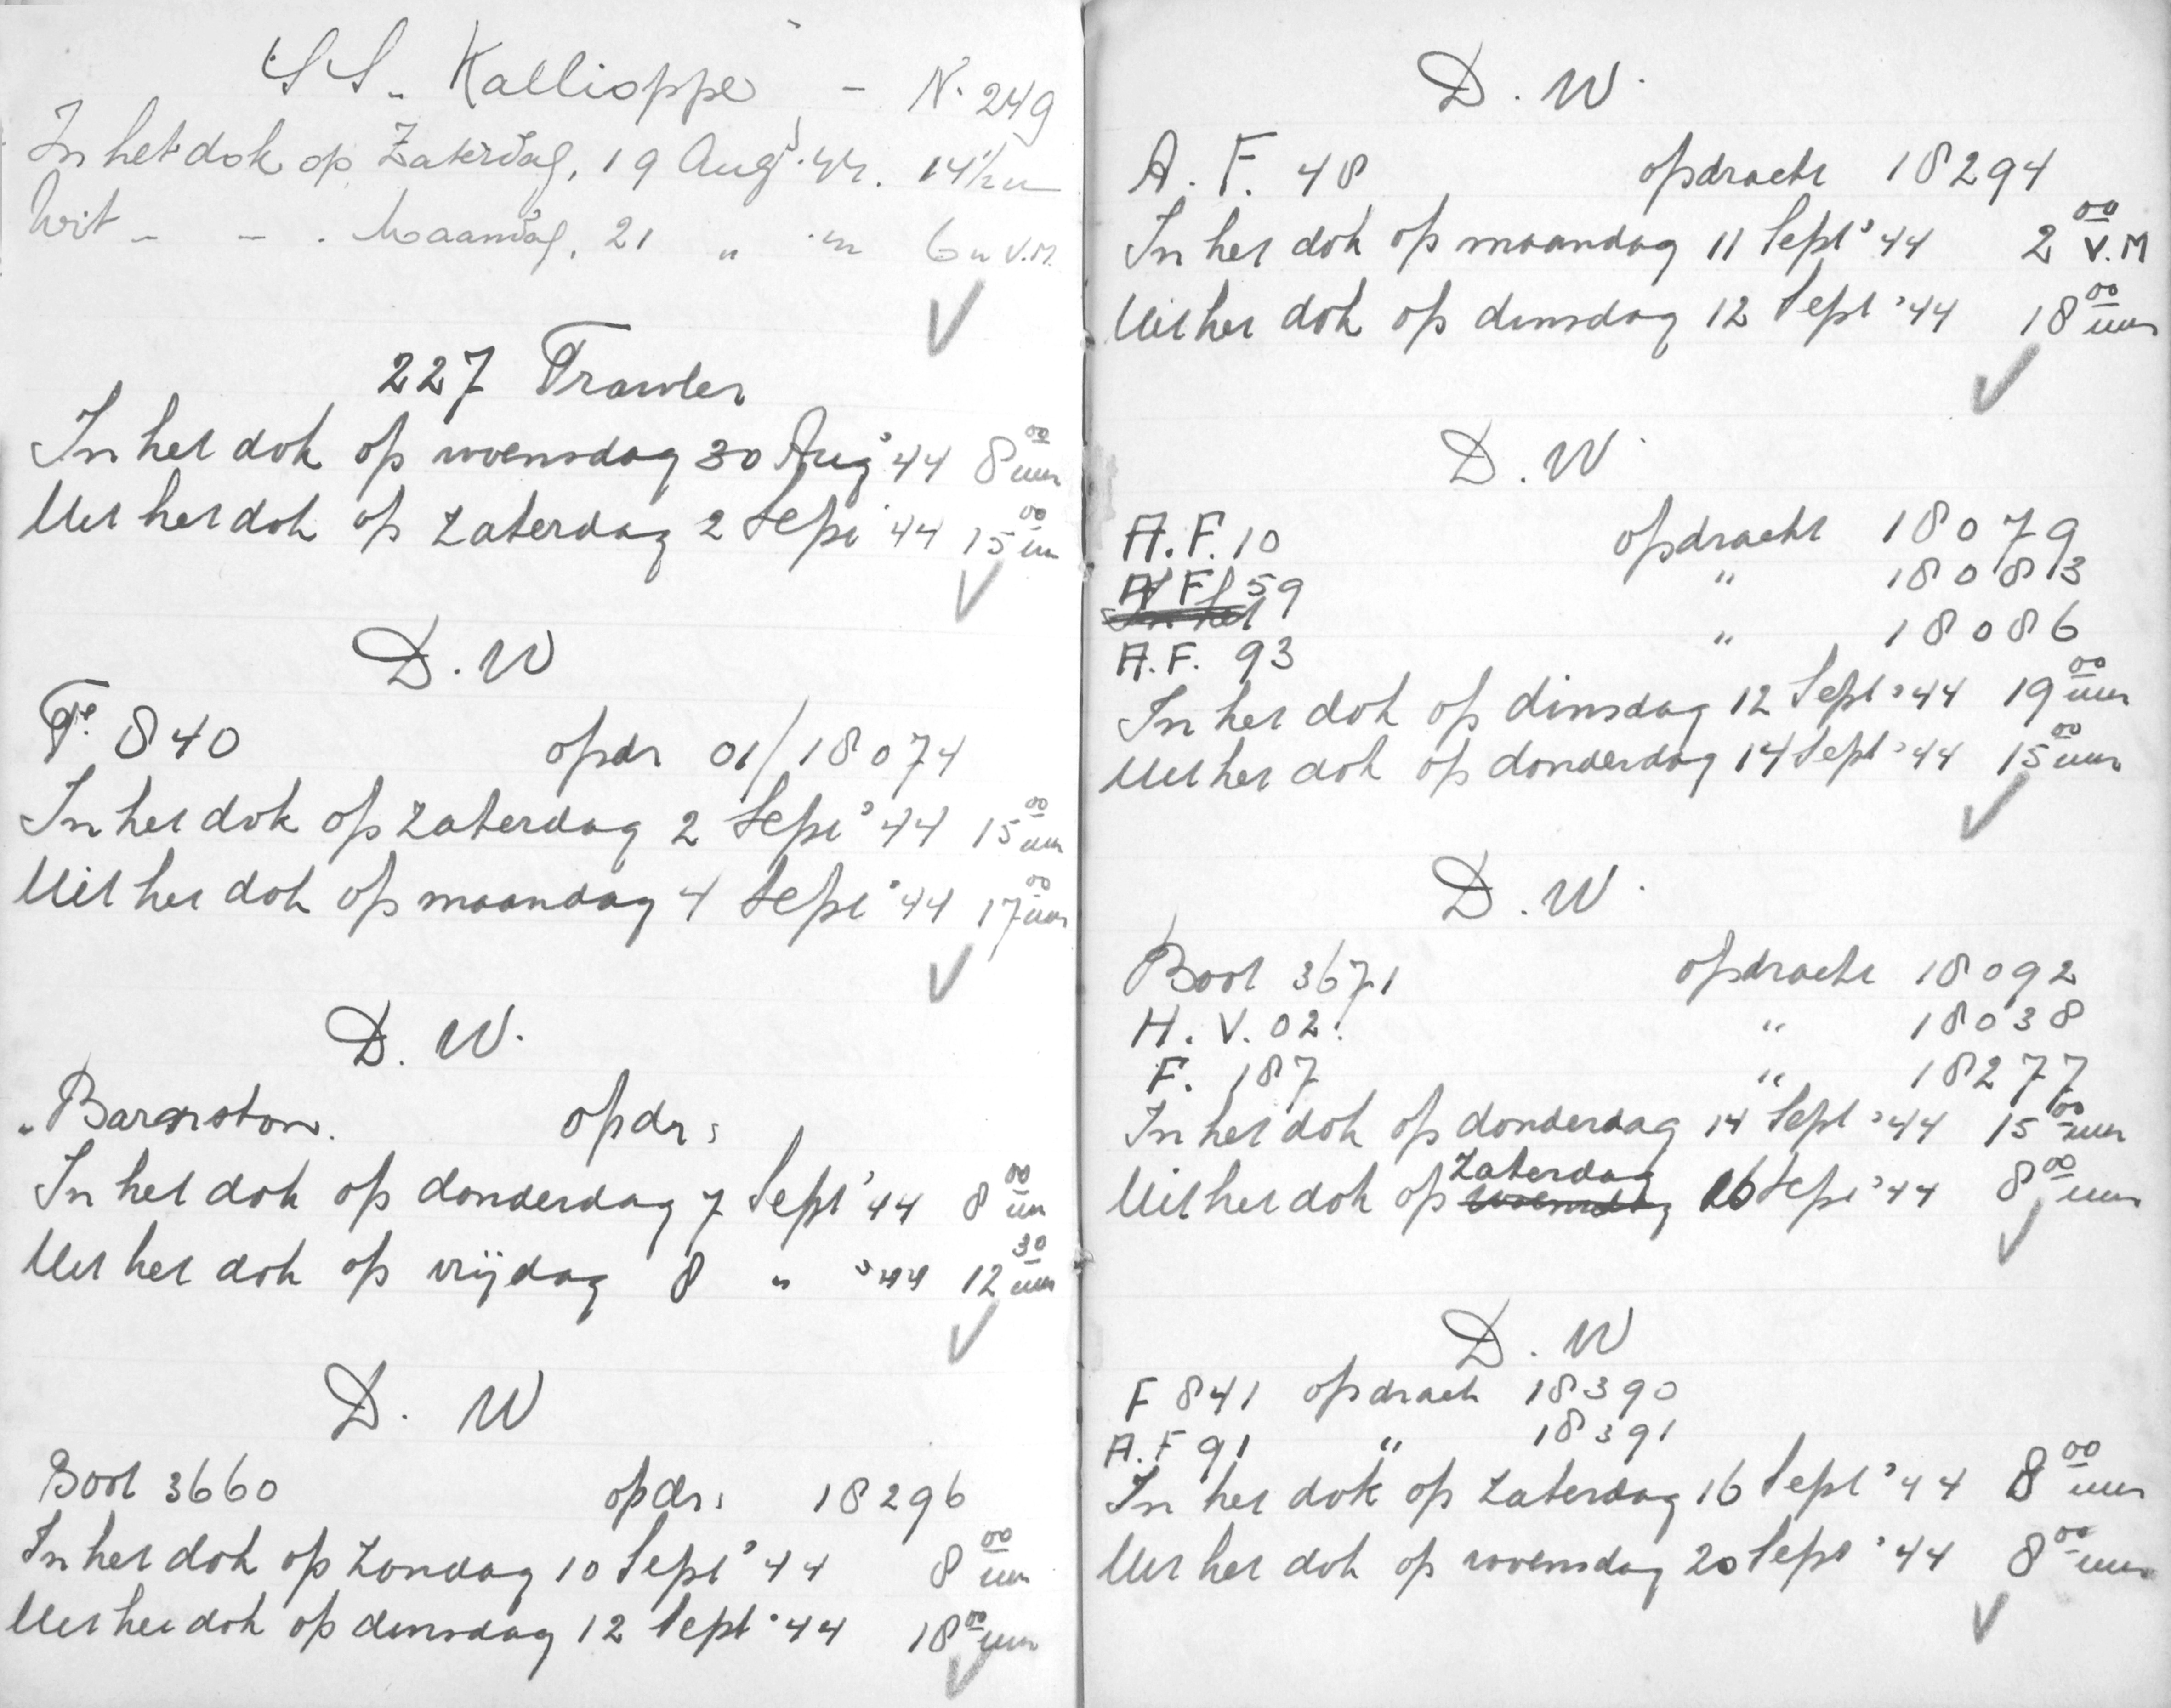 SS. Kallioppe - N. 249
In het dok op Zaterdag, 19 Aug. 44. 14½ u
Uit - - . Maandag, 21 " " 6 u V.M.
227 Trawler
In het dok op woensdag 30 Aug '44 8⁰⁰ uur
Uit het dok op zaterdag 2 Sept '44 15⁰⁰ uur
D.W
F. 840 opdr 01/18074
In het dok op zaterdag 2 Sept '44 15⁰⁰ uur
Uit het dok op maandag 4 Sept '44 17⁰⁰ uur
D.W.
opdr:
In het dok op donderdag 7 Sept '44 8⁰⁰ uur
Uit het dok op vrijdag 8 " '44 12³⁰ uur
D.W
Boot 3660 opdr: 18296
In het dok op zondag 10 Sept '44 8⁰⁰ uur
Uit het dok op dinsdag 12 Sept '44 18⁰⁰ uur
D.W.
A.F. 48 opdracht 18294
In het dok op maandag 11 Sept '44 2⁰⁰ V.M
Uit het dok op dinsdag 12 Sept '44 18⁰⁰ uur
D.W.
A.F. 10 opdracht 18079
A.F. 59 " 18083
In het
A.F. 93 " 18086
In het dok op dinsdag 12 Sept '44 19⁰⁰ uur
Uit het dok op donderdag 14 Sept '44 15⁰⁰ uur
D.W.
Boot 3671 opdracht 18092
H.V. 02. " 18038
F. 187 " 18277
In het dok op donderdag 14 Sept '44 15⁰⁰ uur
Uit het dok op woensdag zaterdag 16 Sept '44 8⁰⁰ uur
D.W
F 841 opdracht 18390
A.F 91 " 18391
In het dok op zaterdag 16 Sept '44 8⁰⁰ uur
Uit het dok op woensdag 20 Sept '44 8⁰⁰ uur